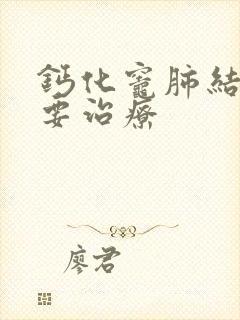 鈣化竈肺結
要治療
廖君